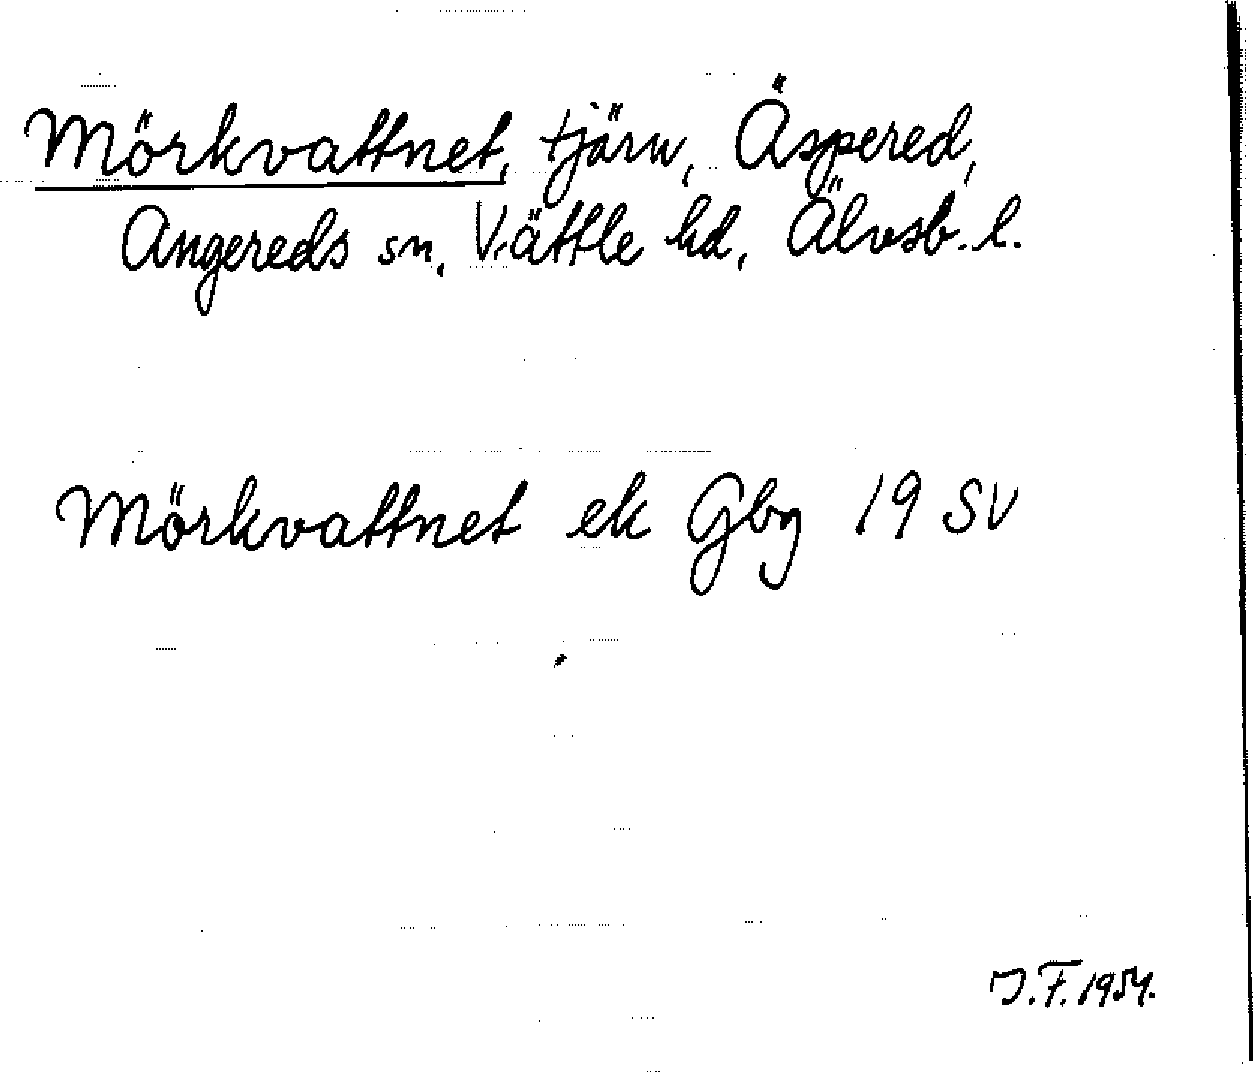 Mörkvattnet, tjärn, Äspered,
Angereds sn, Vättle hd, Älvsb. l.
Mörkvattnet ek Gbg 19 SV
J.F. 1954.